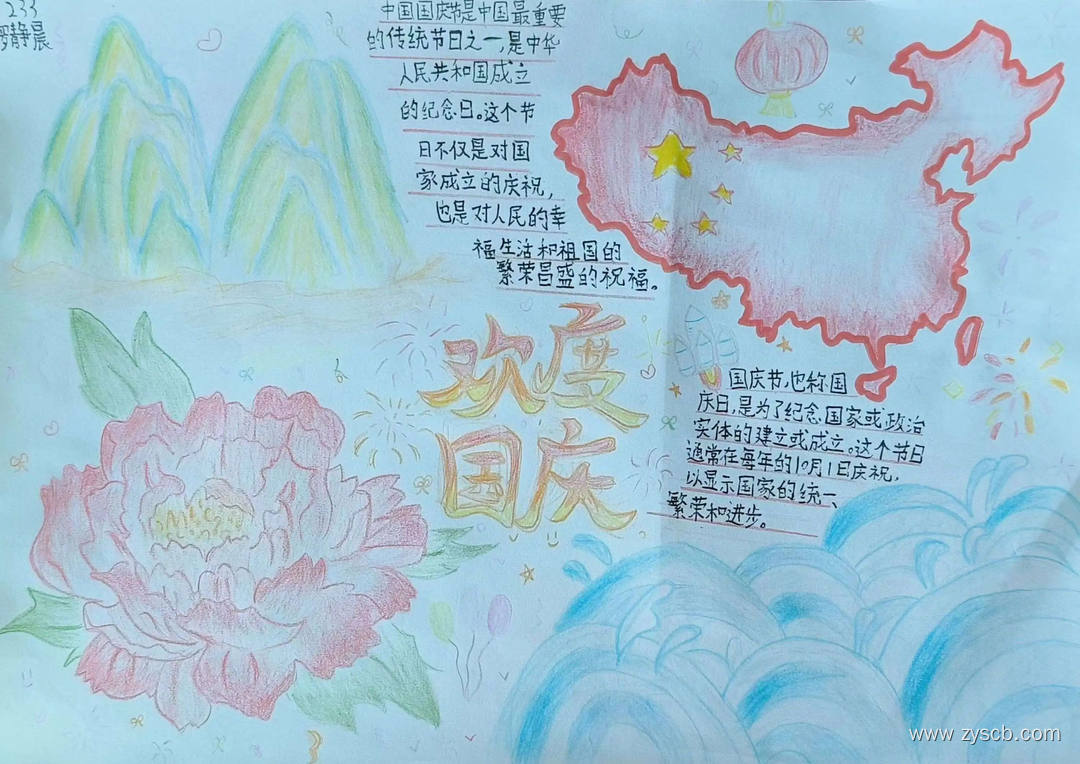 233
罗静晨
中国国庆节是中国最重要
的传统节日之一,是中华
人民共和国成立
的纪念日。这个节
日不仅是对国
家成立的庆祝,
也是对人民的幸
福生活和祖国的
繁荣昌盛的祝福。
欢度
国庆
国庆节,也称国
庆日,是为了纪念国家或政治
实体的建立或成立。这个节日
通常在每年的10月1日庆祝,
以显示国家的统一、
繁荣和进步。
www.zyscb.com